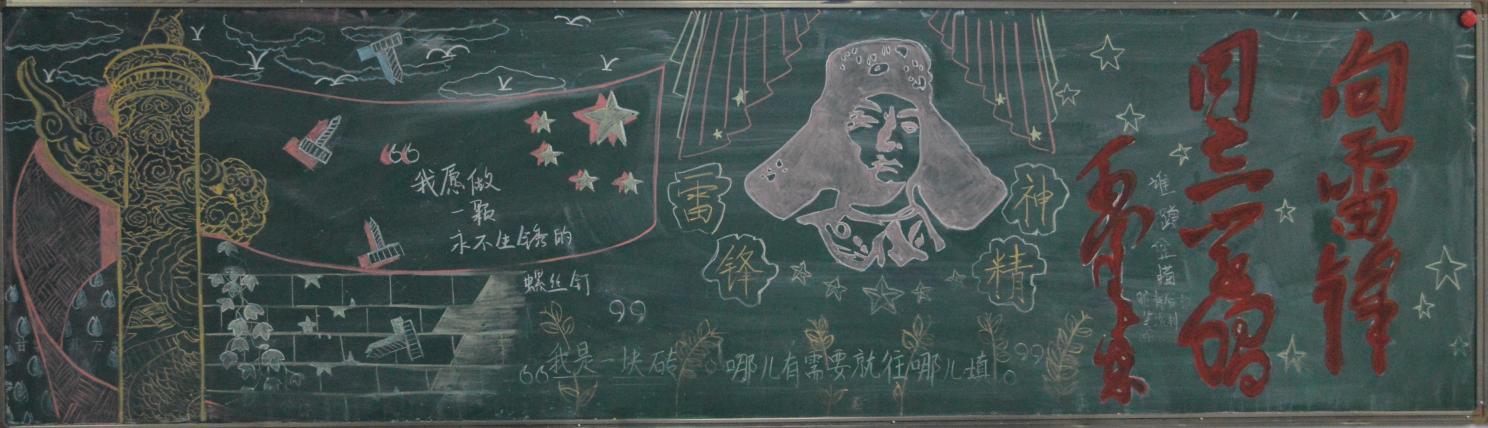 “我愿做
一颗
永不生锈的
螺丝钉”
“我是一块砖 哪儿有需要就往哪儿填。”
雷锋
精神
向雷锋
同志学习
毛泽东